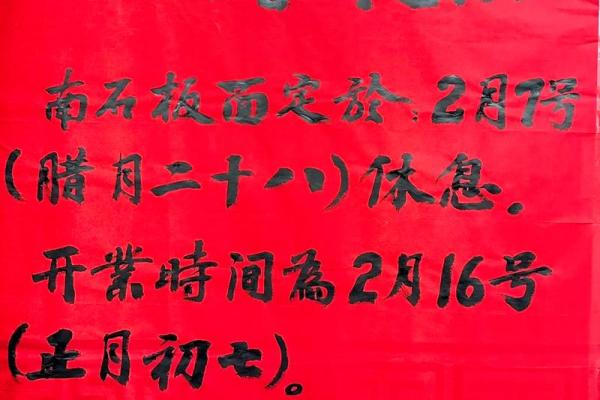 南石板面定於:2月7号
(腊月二十八)休息.
开業時间為2月16号
(正月初七)。